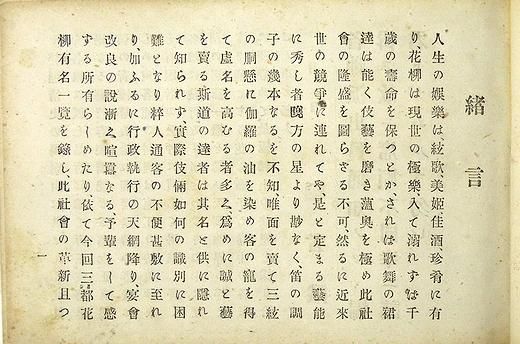 緒言
人生の娯樂は、絃歌、美姫佳酒、珍肴に有
り、花柳は現世の極樂、入て溺れずば千
歳の壽命を保つとか、されば歌舞の裙
達は能く伎藝を磨き薀奥を極め此社
會の隆盛を圖らざる不可、然るに近來
世の競爭に連れてや、是と定まる藝能
に秀し者曉方の星より尠なく、笛の調
子の幾本なるを不知、唯面を賣て三絃
の胴懸に伽羅の油を染め客の寵を得
て虚名を高むる者多し、爲めに誠と藝
を賣る斯道の達者は其名と供に隱れ
て知られず、實際伎倆如何の識別に困
難となり粹人通客の不便甚敷に至れ
り、加ふるに行政執行の天網降り、宴會
改良の説漸々喧囂なる予輩をして感
ずる所有らしめたり依て今回三都花
柳有名一覽を錄し、此社會の革新且つ
一